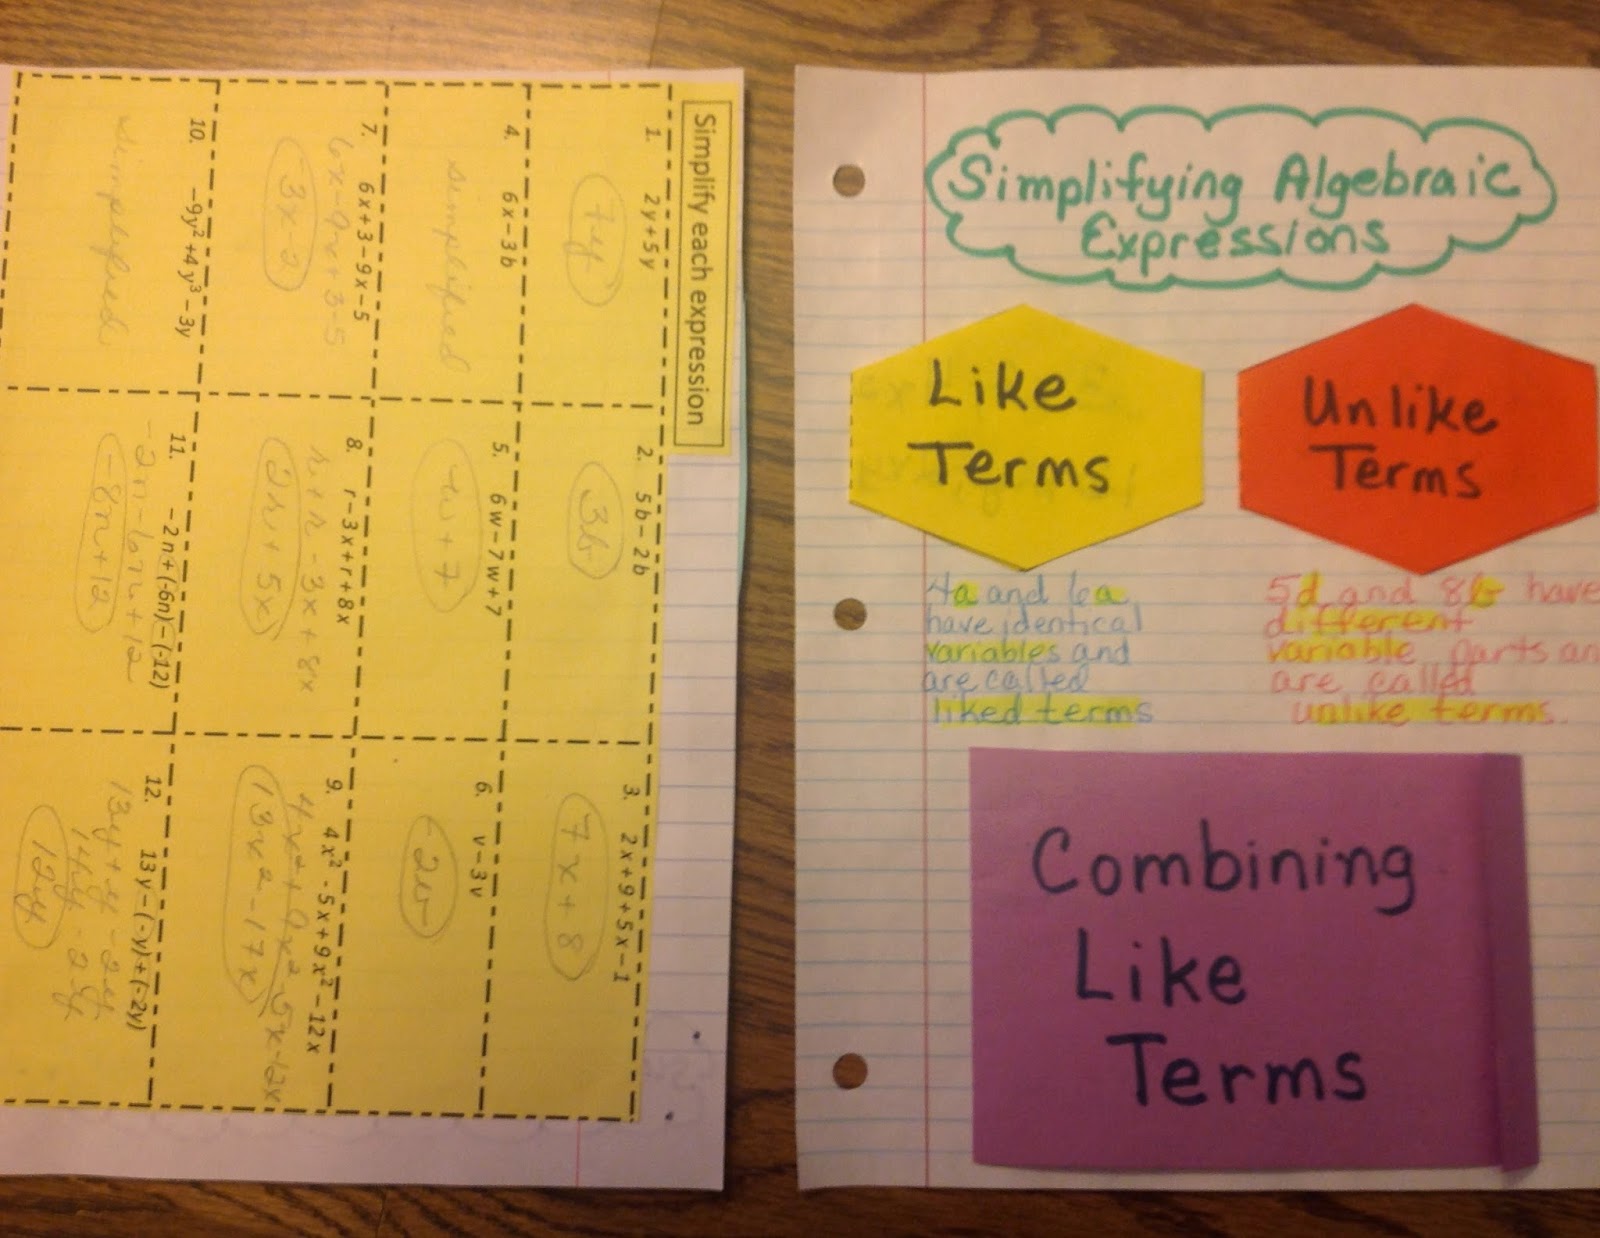 Simplify each expression
1. 2y+5y
7y
2. 5b-2b
3b
3. 2x+9+5x-1
7x+8
4. 6x-3b
simplified
5. 6w-7w+7
-w+7
6. v-3v
-2v
7. 6x+3-9x-5
6x-9x+3-5
-3x-2
8. r-3x+r+8x
r+r-3x+8x
2r+5x
9. 4x²-5x+9x²-12x
4x²+9x²-5x-12x
13x²-17x
10. -9y²+4y³-3y
simplified
11. -2n+(-6n)-(-12)
-2n-6n+12
-8n+12
12. 13y-(-y)+(-2y)
13y+y-2y
14y-2y
12y
Simplifying Algebraic
Expressions
Like
Terms
4a and 6a
have identical
variables and
are called
liked terms
Unlike
Terms
5d and 8b have
different
variable parts an
are called
unlike terms.
Combining
Like
Terms